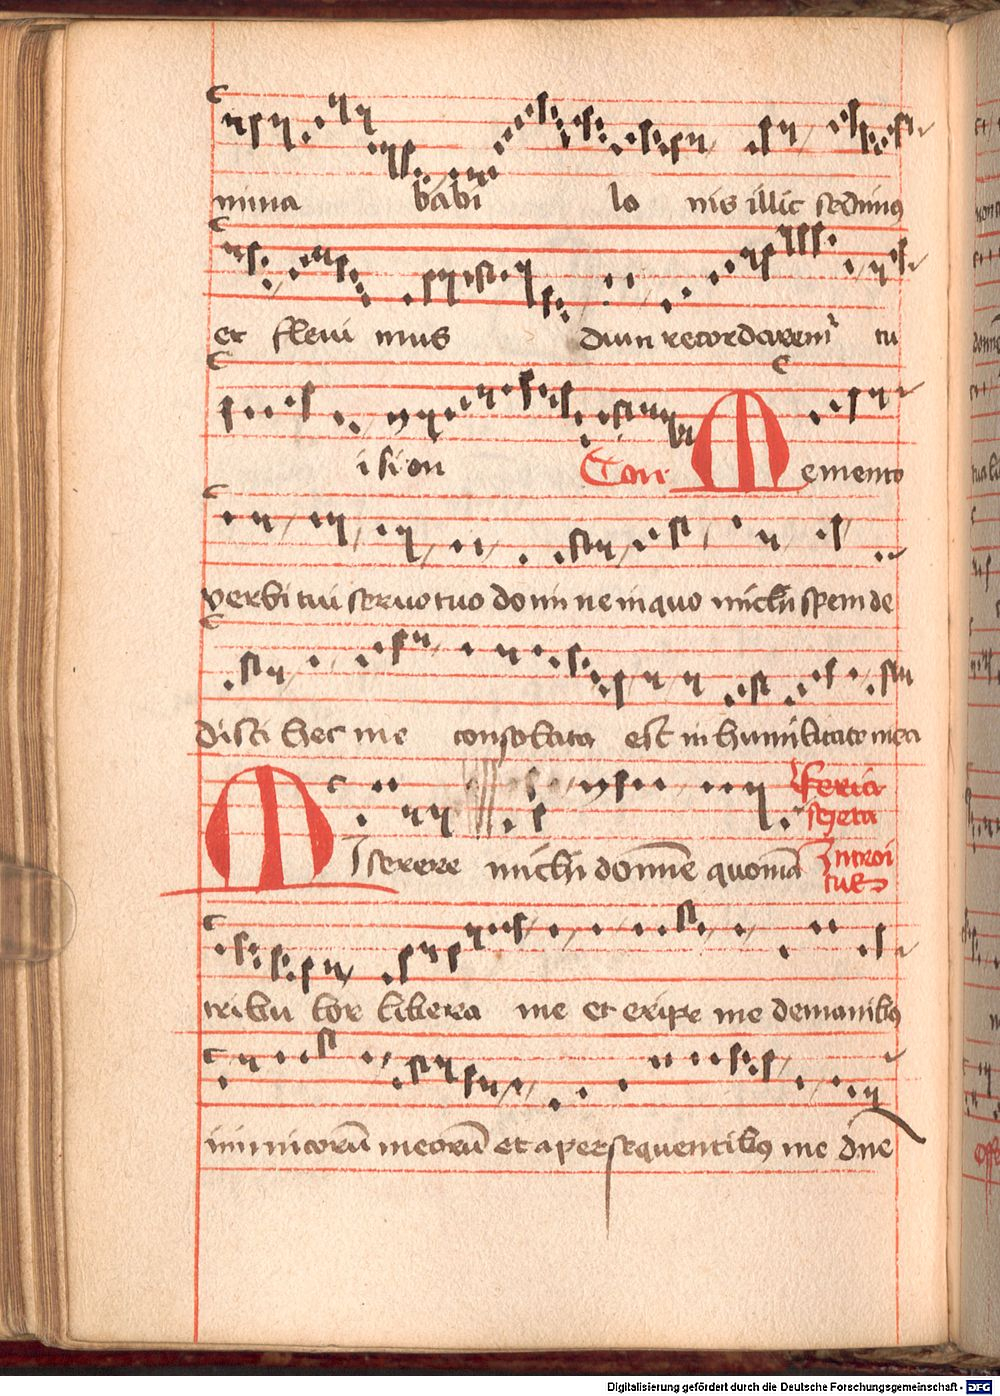 mina babi lo nis illic sedimus
et flevi mus dum recordaremur tu
i sion Con Memento
verbi tui servo tuo do mi ne in quo michi spem de
disti hec me consolata est in humilitate mea
MIserere michi domine quoniam Feria sexta Introitus
tribu lor libera me et eripe me de manibus
inimicorum meorum et a persequentibus me dne
Digitalisierung gefördert durch die Deutsche Forschungsgemeinschaft - DFG